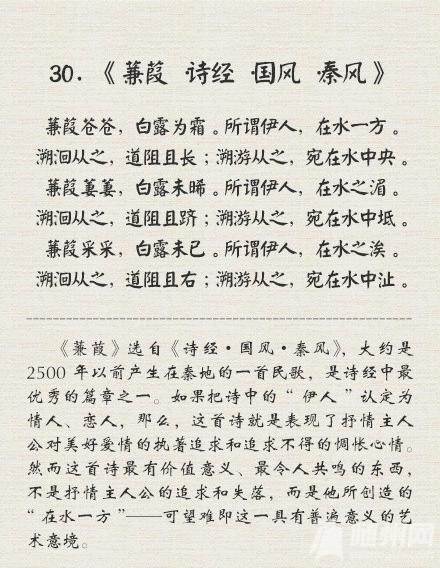 30.《蒹葭 诗经 国风 秦风》
蒹葭苍苍，白露为霜。所谓伊人，在水一方。
溯洄从之，道阻且长；溯游从之，宛在水中央。
蒹葭萋萋，白露未晞。所谓伊人，在水之湄。
溯洄从之，道阻且跻；溯游从之，宛在水中坻。
蒹葭采采，白露未已。所谓伊人，在水之涘。
溯洄从之，道阻且右；溯游从之，宛在水中沚。
《蒹葭》选自《诗经·国风·秦风》，大约是
2500 年以前产生在秦地的一首民歌，是诗经中最
优秀的篇章之一。如果把诗中的“伊人”认定为
情人、恋人，那么，这首诗就是表现了抒情主人
公对美好爱情的执著追求和追求不得的惆怅心情。
然而这首诗最有价值意义、最令人共鸣的东西，
不是抒情主人公的追求和失落，而是他所创造的
“在水一方”——可望难即这一具有普遍意义的艺
术意境。
随州网